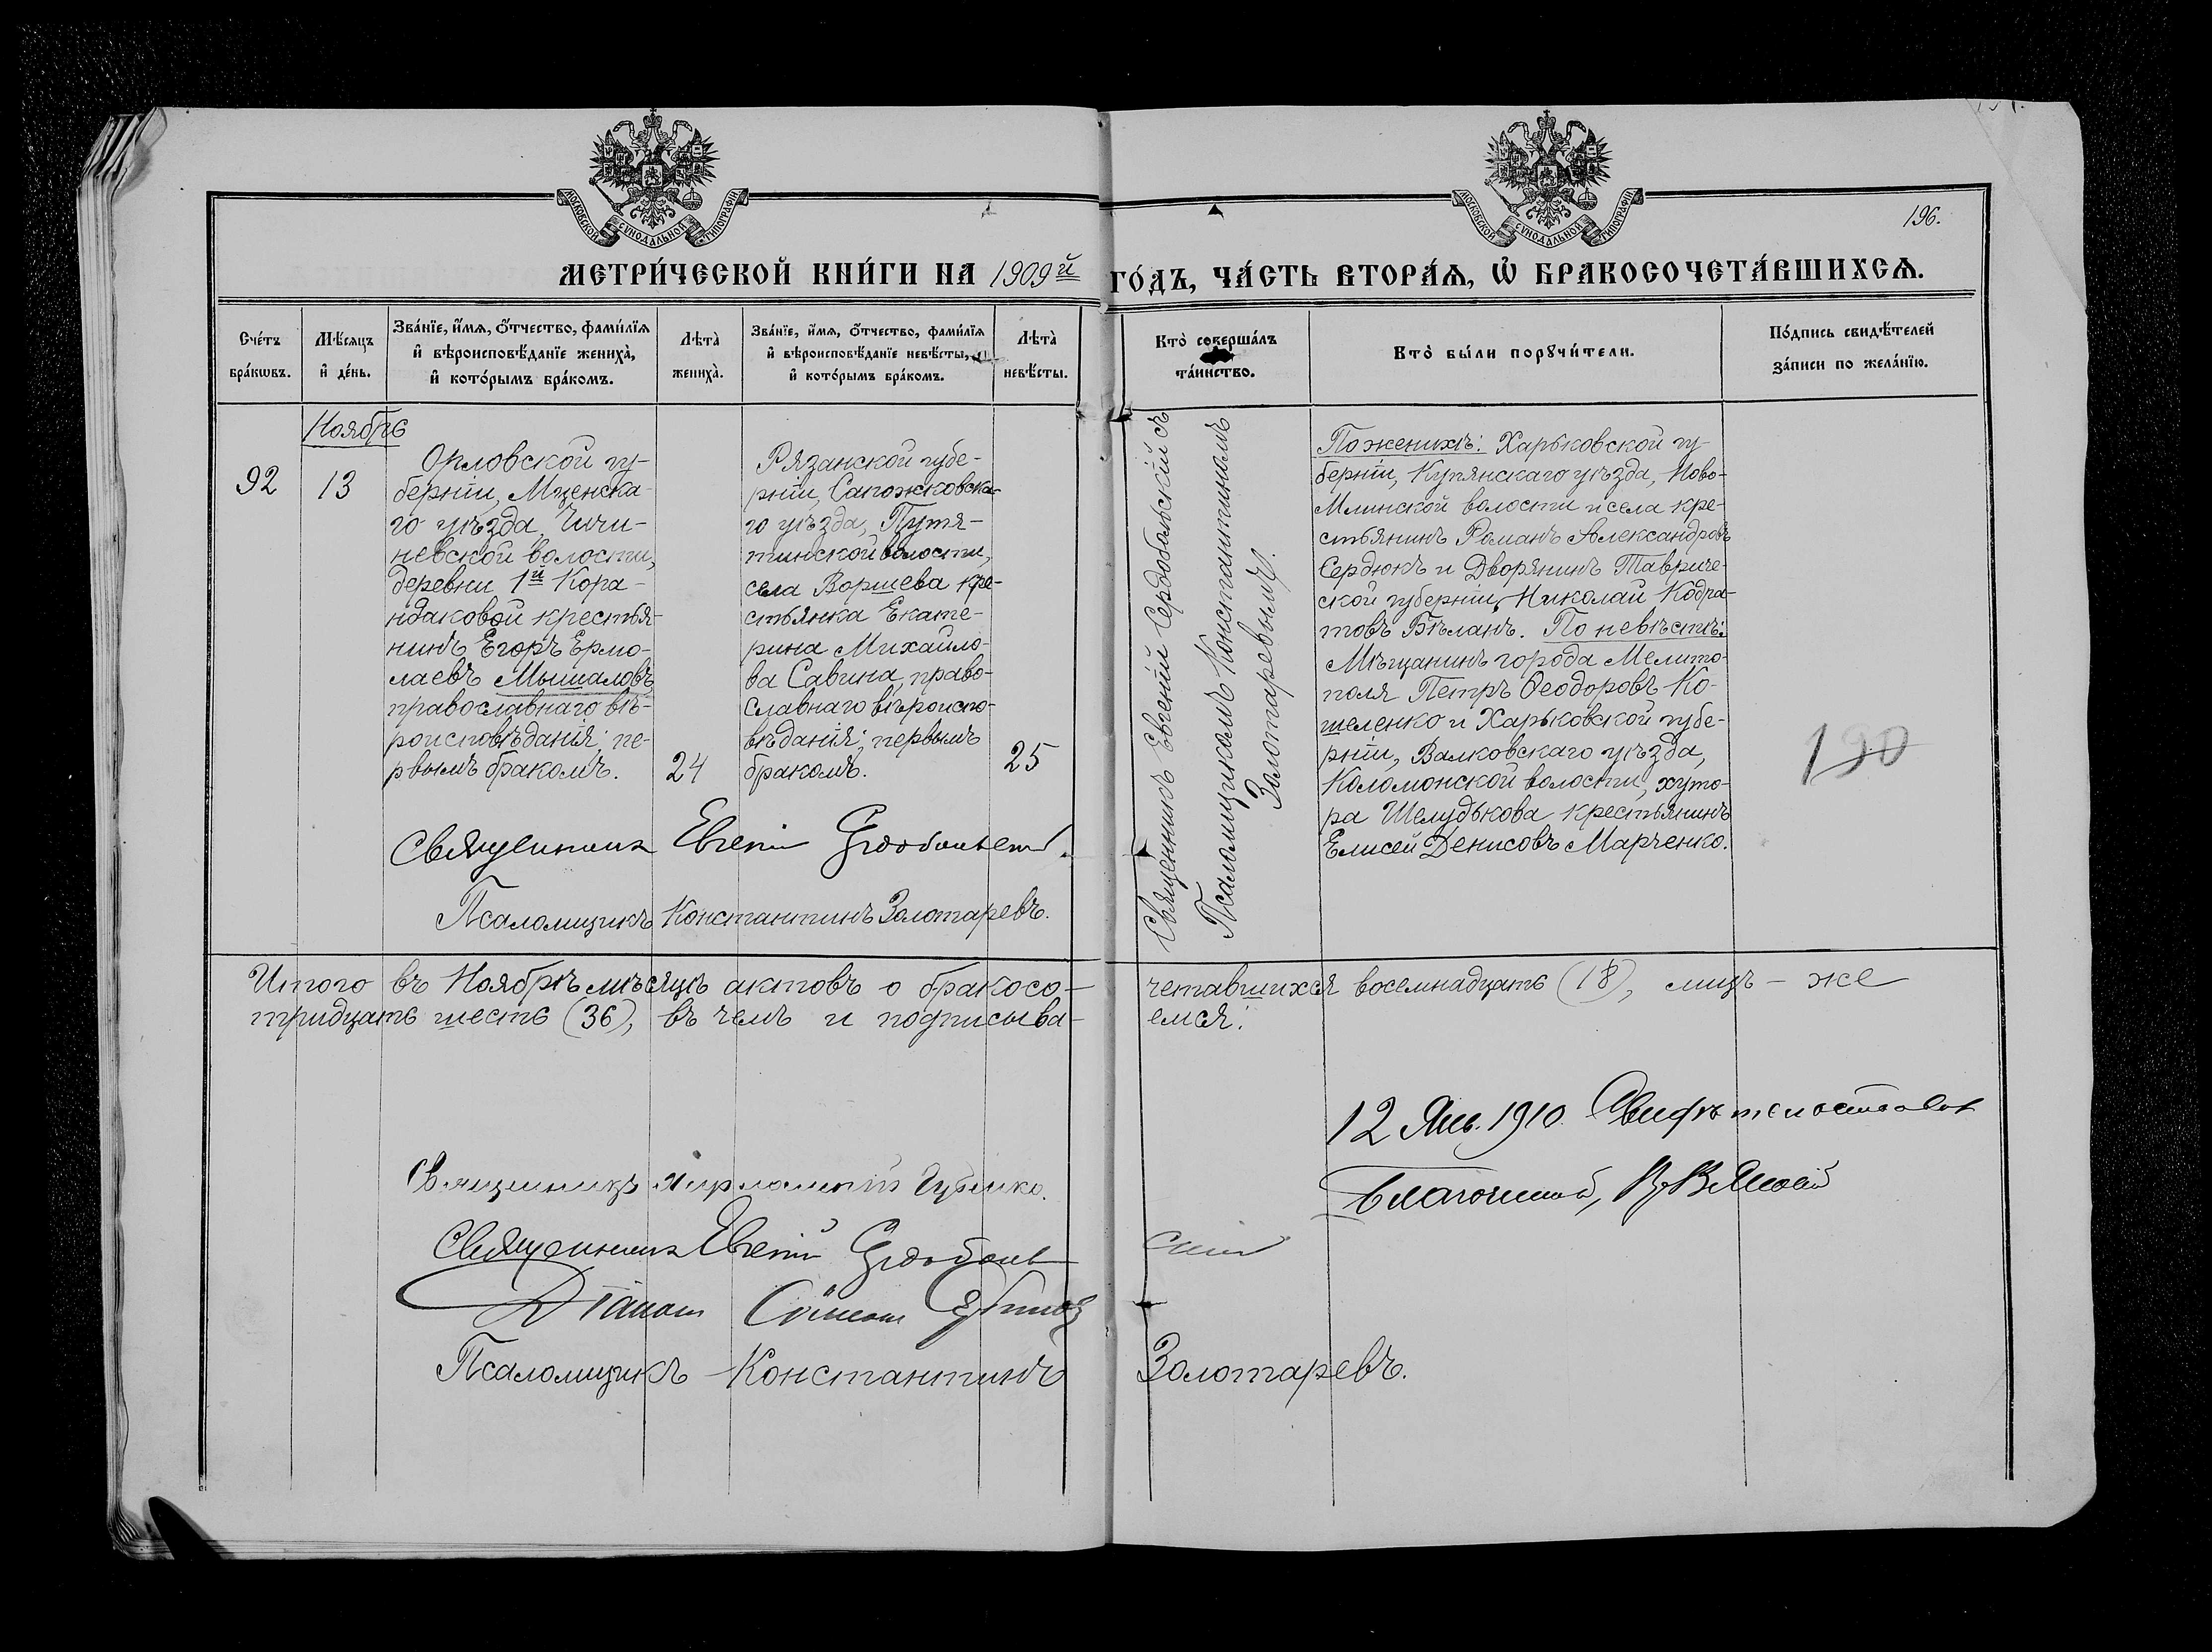 МОСКОВСКОЙ СѴНОДАЛЬНОЙ ТИПОГРАФІИ
МОСКОВСКОЙ СѴНОДАЛЬНОЙ ТИПОГРАФІИ
196.
МЕТРИ́ЧЕСКОЙ КНИ́ГИ НА 1909й ГО́ДЪ, ЧА́СТЬ ВТОРА́Ѧ, Ѡ҆ БРАКОСОЧЕТА́ВШИХСѦ.
Сче́тъ бра́кѡвъ.
Мѣ́сѧцъ и҆ де́нь.
Зва́нїе, и҆́мѧ, ѻ҆́тчество, фами́лїѧ
и҆ вѣроисповѣ́данїе жениха̀,
и҆ кото́рымъ бра́комъ.
Лѣта̀ жениха̀.
Зва́нїе, и҆́мѧ, ѻ҆́тчество, фами́лїѧ
и҆ вѣроисповѣ́данїе невѣ́сты,
и҆ кото́рымъ бра́комъ.
Лѣта̀ невѣ́сты.
Кто̀ соверша́лъ
та́инство.
Кто̀ бы́ли порꙋчи́тели.
По́дпись свидѣ́телей
за́писи по жела́нїю.
Ноябрь
92
13
Орловской гу-
берніи, Мценска-
го уѣзда, Чичи-
невской волости,
деревни 1й Кора-
ндаковой крестья-
нинъ Егоръ Ермо-
лаевъ Мышаловъ,
православнаго вѣ-
роисповѣданія; пе-
рвымъ бракомъ.
24
Рязанской губе-
рніи, Сапожковска-
го уѣзда, Путя-
тинской волости,
села Воршева кре-
стьянка Екате-
рина Михайло-
ва Савина, право-
славнаго вѣроиспо-
вѣданія; первымъ
бракомъ.
25
Священникъ Евгеній Сердобольскій съ
Псаломщикомъ Константиномъ
Золотаревымъ.
По женихѣ: Харьковской гу-
берніи, Купянскаго уѣзда, Ново-
Млинской волости и села кре-
стьянинъ Романъ Александровъ
Сердюкъ и Дворянинъ Тавриче-
ской губерніи, Николай Кодра-
товъ Бѣланъ. По невѣстѣ:
Мѣщанинъ города Мелито-
поля Петръ Ѳеодоровъ Ко-
шеленко и Харьковской губе-
рніи, Валковскаго уѣзда,
Коломонской волости, хуто-
ра Шелудькова крестьянинъ
Елисей Денисовъ Марченко.
190
Священникъ Евгеній
Псаломщикъ Константинъ Золотаревъ.
Итого въ Ноябрѣ мѣсяцѣ актовъ о бракосо-четавшихся восемнадцать (18), лицъ - же
тридцать шесть (36), въ чемъ и подписыва-емся:
12 Янв. 1910.
Благочинный,
Священникъ
Священникъ Евгеній
Псаломщикъ Константинъ Золотаревъ.